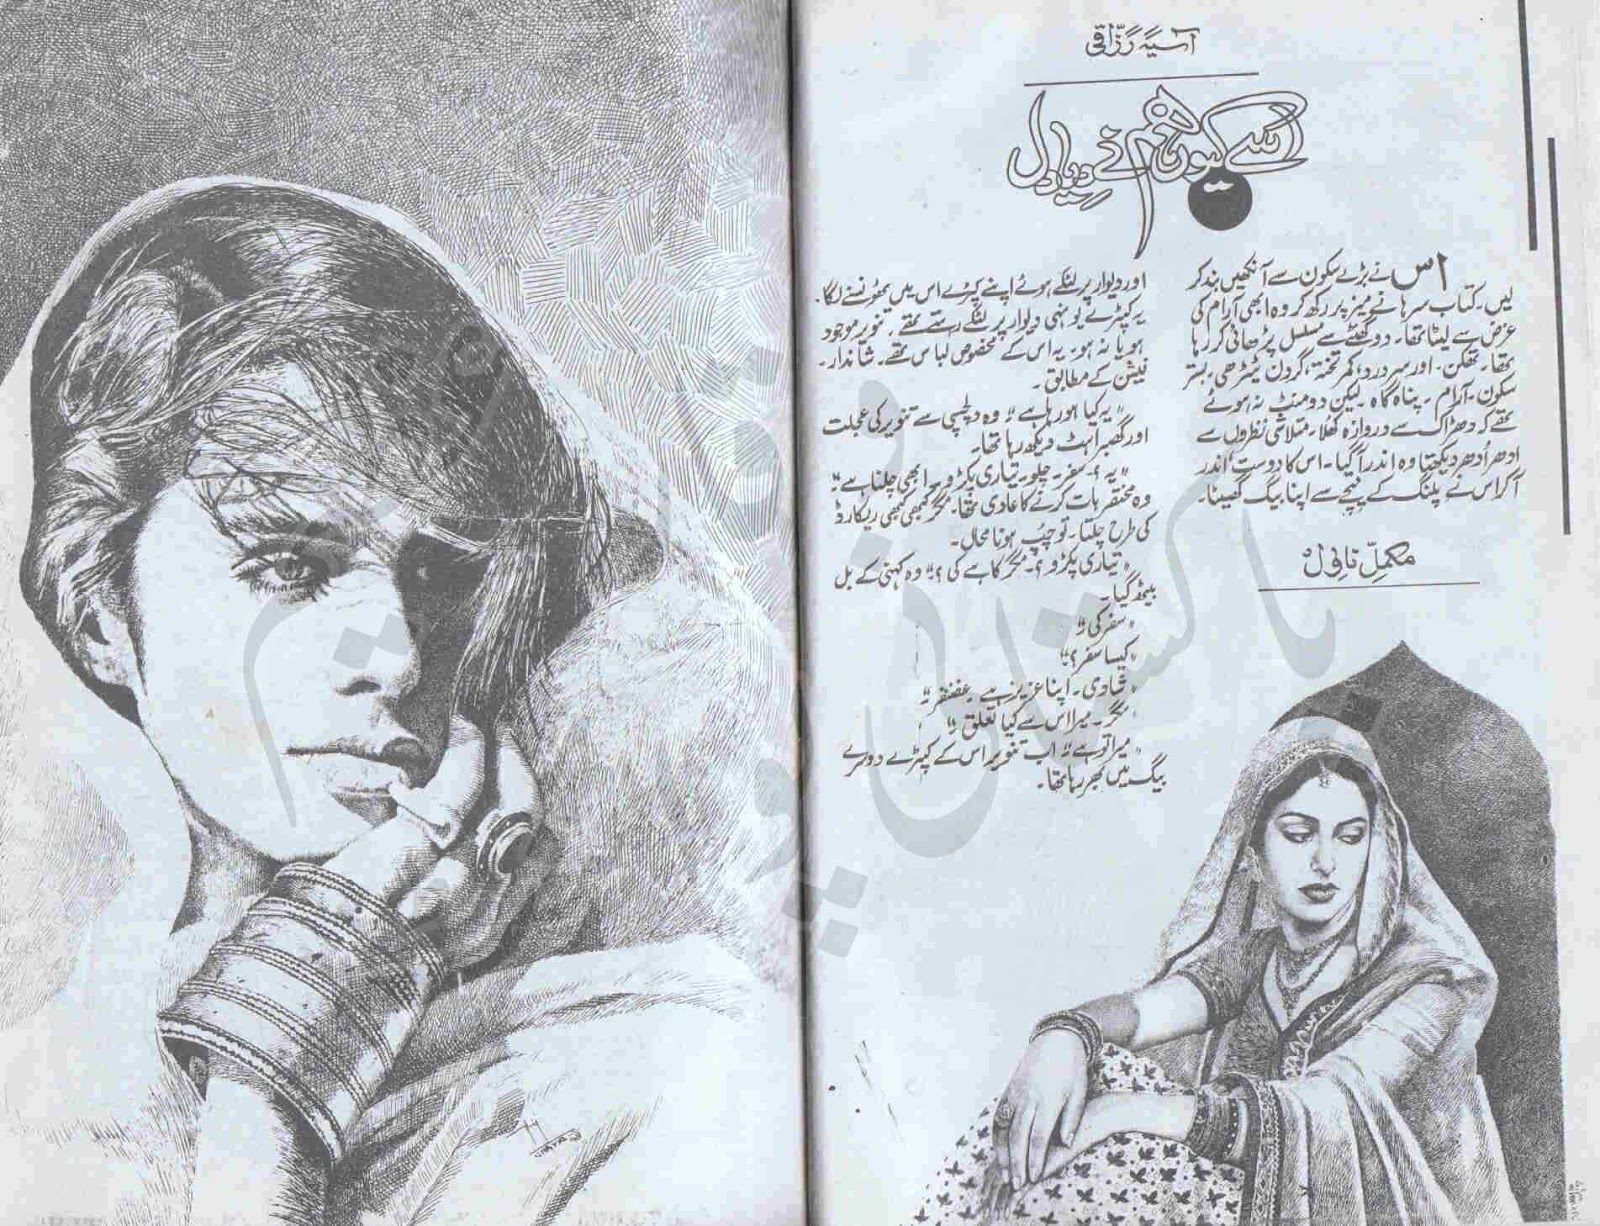 آسیہ رزاقی
اسے کیوں ہم نے دیا دل
اس نے بڑے سکون سے آنکھیں بند کر
لیں۔ کتاب سرہانے میز پر رکھ کر وہ ابھی آرام کی
غرض سے لیٹا تھا۔ دو گھنٹے سے مسلسل پڑھائی کر رہا
تھا۔ تھکن۔ اور سر درد، کمر تختہ، گردن ٹیڑھی۔ بستر
سکون۔ آرام ۔ پناہ گاہ ۔ لیکن دو منٹ نہ ہوئے
تھے کہ دھڑاک سے دروازہ کھلا۔ متلاشی نظروں سے
ادھر اُدھر دیکھتا وہ اندر آ گیا۔ اس کا دوست اندر
آکر اس نے پلنگ کے نیچے سے اپنا بیگ گھسیٹا۔
مکمل ناول
اور دیوار پر لٹکے ہوئے اپنے کپڑے اس میں ٹھونسنے لگا۔
یہ کپڑے یونہی دیوار پر لٹکے رہتے تھے۔ تنویر موجود
ہو یا نہ ہو۔ یہ اس کے مخصوص لباس تھے۔ شاندار۔
فیشن کے مطابق۔
"یہ کیا ہو رہا ہے" وہ دلچسپی سے تنویر کی عجلت
اور گھبراہٹ دیکھ رہا تھا۔
"یہ؟ سفر۔ چلو۔ تیاری پکڑو۔ ابھی چلنا ہے"
وہ مختصر بات کرنے کا عادی تھا۔ مگر کبھی کبھی ریکارڈ
کی طرح چلتا۔ تو چپ ہونا محال۔
"تیاری پکڑو؟۔ مگر کاہے کی؟" وہ کہنی کے بل
بیٹھ گیا۔
"سفر کی"
"کیسا سفر؟"
"شادی۔ اپنا عزیز ہے غضنفر"
"مگر۔ میرا اس سے کیا تعلق"
"میرا تو ہے" اب تنویر اس کے کپڑے دوسرے
بیگ میں بھر رہا تھا۔